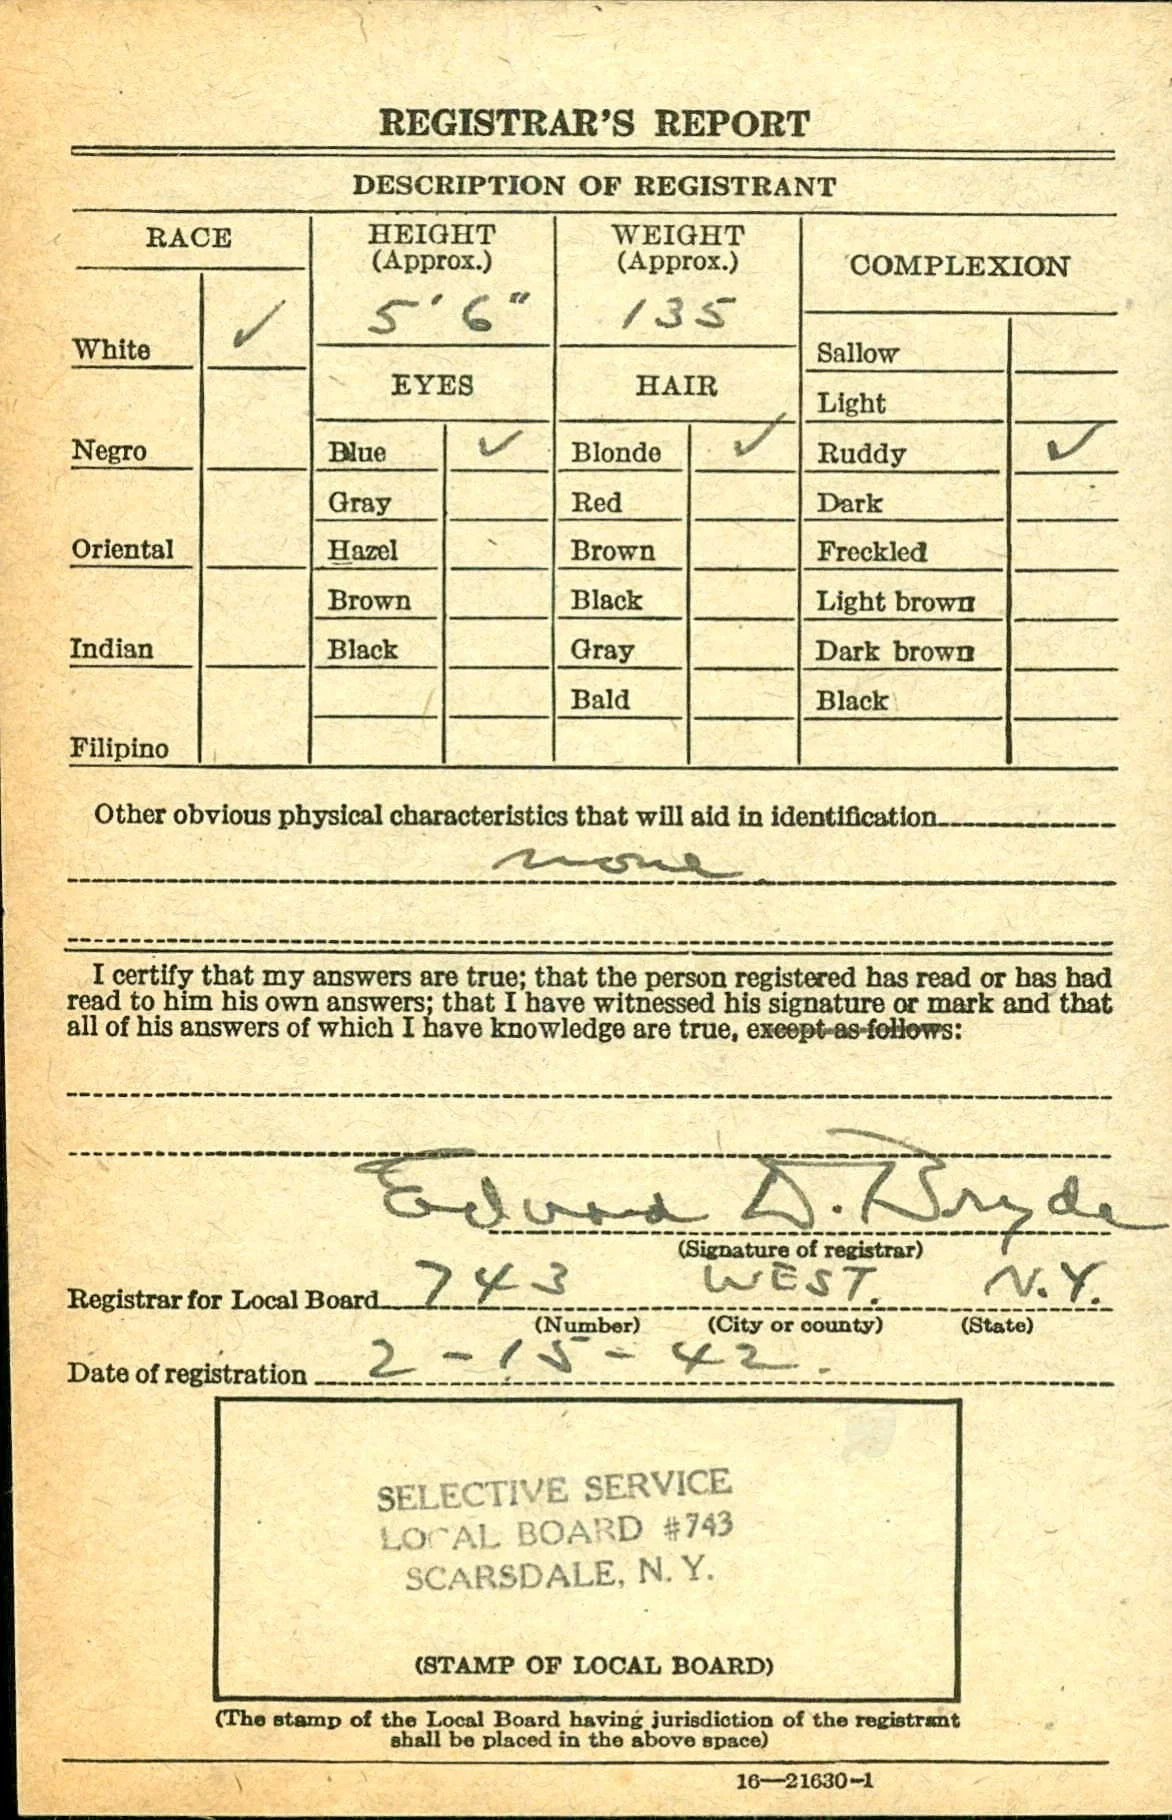 REGISTRAR'S REPORT
DESCRIPTION OF REGISTRANT
RACE
White ✓
Negro
Oriental
Indian
Filipino
HEIGHT
(Approx.)
5' 6"
EYES
Blue ✓
Gray
Hazel
Brown
Black
WEIGHT
(Approx.)
135
HAIR
Blonde ✓
Red
Brown
Black
Gray
Bald
COMPLEXION
Sallow
Light
Ruddy ✓
Dark
Freckled
Light brown
Dark brown
Black
Other obvious physical characteristics that will aid in identification
none
I certify that my answers are true; that the person registered has read or has had
read to him his own answers; that I have witnessed his signature or mark and that
all of his answers of which I have knowledge are true, except as follows:
Edward D. Bryde
(Signature of registrar)
Registrar for Local Board 743 WEST. N.Y.
(Number) (City or county) (State)
Date of registration 2-15-42.
SELECTIVE SERVICE
LOCAL BOARD #743
SCARSDALE, N. Y.
(STAMP OF LOCAL BOARD)
(The stamp of the Local Board having jurisdiction of the registrant
shall be placed in the above space)
16—21630-1